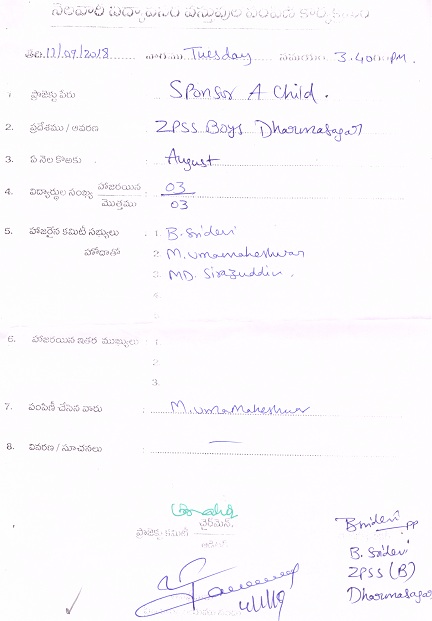 నెలవారీ విద్యార్థులకు వస్తువుల పంపిణీ కార్యక్రమం
తేది: 11/09/2018 వారము Tuesday సమయం 3.40 PM.
1. ప్రాజెక్టు పేరు Sponsor A Child.
2. ప్రదేశము / ఆవరణ : ZPSS Boys Dharmasagar
3. ఏ నెల కొఱకు : August
4. విద్యార్థుల సంఖ్య హాజరయిన : 03
మొత్తము 03
5. హాజరైన కమిటీ సభ్యులు : 1. B. Sridevi
హోదాతో 2. M. Umamaheshwar
3. MD. Sirazuddin.
4.
5.
6. హాజరయిన ఇతర ముఖ్యులు : 1.
2.
3.
7. పంపిణీ చేసిన వారు : M. UmaMaheshwar
8. వివరణ / సూచనలు :
ప్రాజెక్టు కమిటీ చైర్‌మెన్.
4/1/19
Bsridevi PP
B. Sridevi
ZPSS (B)
Dharmasagar